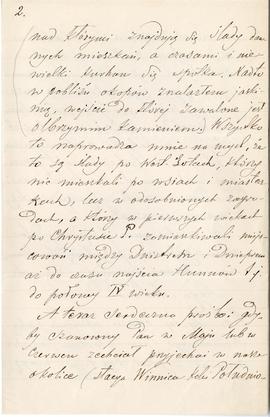 2.
(nad któremi znajdują się ślady daw-
nych mieszkań, a czasami i nie
wielki kurhan się spotka. Nadto
w pobliżu okopów znalazłem jaski-
nię, wejście do której zawalone jest
olbrzymim kamieniem.) Wszystko
to naprowadza mnie na myśl, że
to są ślady po West Gotach, którzy
nie mieszkali po wsiach i miastecz-
kach, lecz w odosobnionych zagro-
dach, a którzy w pierwszych wiekach
po Chrystusie P. zamieszkiwali miejs-
cowość między Dniestrem i Dnieprem
aż do czasu najścia Hunnów t. j.
do połowy IV wieku.
A teraz serdeczna prośba: gdy-
by Szanowny Pan w Maju lub w
czerwcu zechciał przyjechać w nasze
okolice (stacya Winnica kolei Południo-